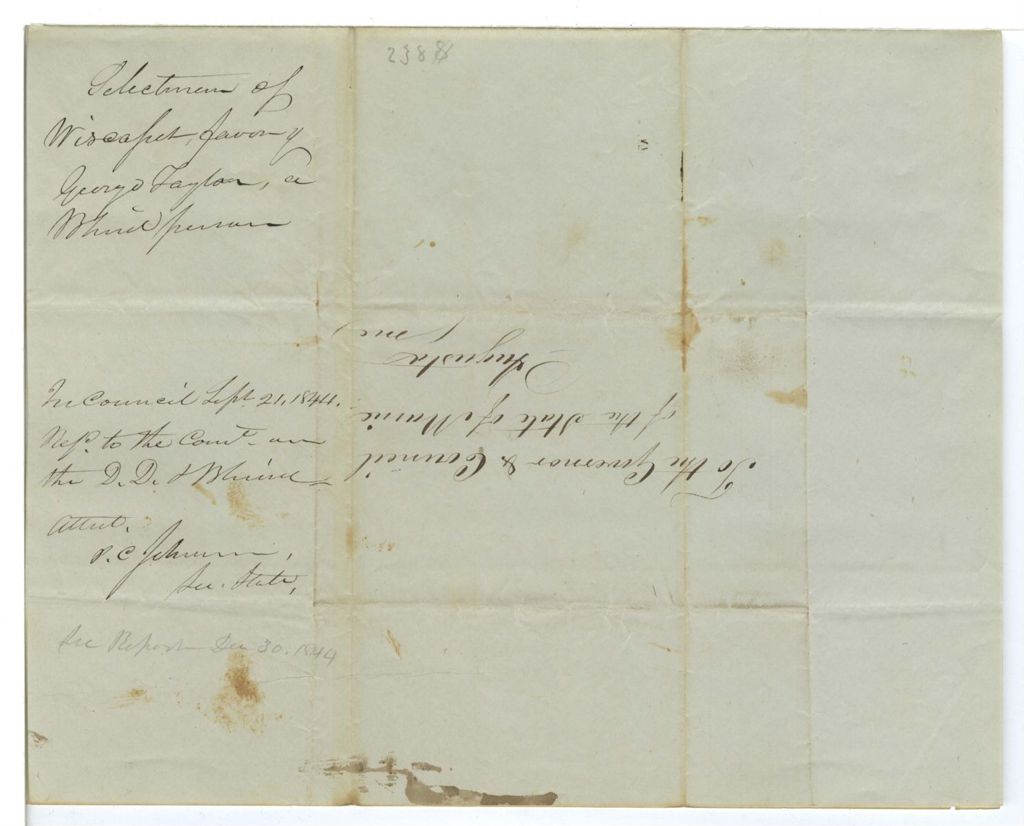 Selectmen of
Wiscasset, favor of
George Taylor, a
Blind person
In Council Sept. 21, 1844.
Refd. to the Come. on
the D. D. & Blind
Attest.
P. C. Johnson,
Sec. State,
See Report Dec 30. 1844
238
To the Governor & Council
of the State of Maine
Augusta
me